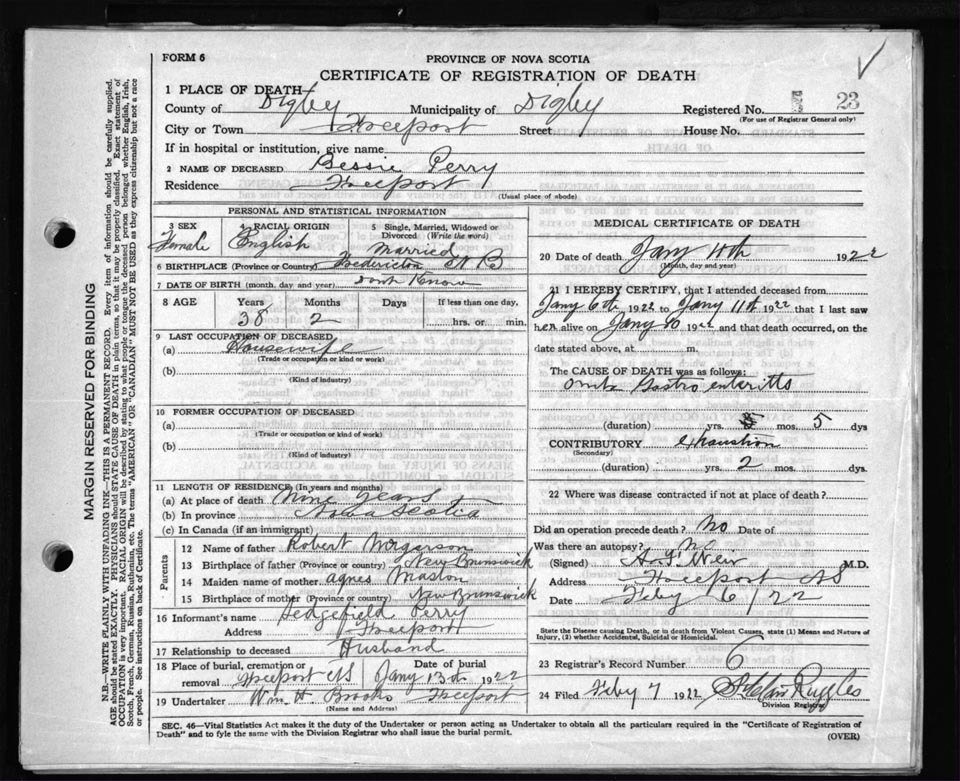 FORM 6
PROVINCE OF NOVA SCOTIA
CERTIFICATE OF REGISTRATION OF DEATH
1 PLACE OF DEATH—
County of Digby Municipality of Digby Registered No. 23
(For use of Registrar General only)
City or Town Freeport Street House No.
If in hospital or institution, give name
2 NAME OF DECEASED Bessie Perry
Residence Freeport
(Usual place of abode)
PERSONAL AND STATISTICAL INFORMATION
3 SEX RACIAL ORIGIN 5 Single, Married, Widowed or Divorced (Write the word)
Female English Married
6 BIRTHPLACE (Province or Country) Fredericton N B
7 DATE OF BIRTH (month, day and year) dont Know
8 AGE Years Months Days If less than one day,
38 2 hrs. or min.
9 LAST OCCUPATION OF DECEASED
(a) Housewife
(Trade or occupation or kind or work)
(b)
(Kind of industry)
10 FORMER OCCUPATION OF DECEASED
(a)
(Trade or occupation or kind of work)
(b)
(Kind of industry)
11 LENGTH OF RESIDENCE (In years and months)
(a) At place of death Nine Years
(b) In province Nova Scotia
(c) In Canada (if an immigrant)
Parents
12 Name of father Robert
13 Birthplace of father (Province or country) New Brunswick
14 Maiden name of mother agnes
15 Birthplace of mother (Province or country) New Brunswick
16 Informant's name Sedgefield Perry
Address Freeport
17 Relationship to deceased Husband
18 Place of burial, cremation or removal Freeport NS Date of burial Jany 13th 1922
19 Undertaker Wm. H. Brooks Freeport
(Name and Address)
MEDICAL CERTIFICATE OF DEATH
20 Date of death Jany 11th 1922
(Month, day and year)
21 I HEREBY CERTIFY, that I attended deceased from
Jany 6th 1922 to Jany 11th 1922 that I last saw
her alive on Jany 10 1922 and that death occurred, on the
date stated above, at m.
The CAUSE OF DEATH was as follows:
Gastro enteritis
(duration) yrs. mos. 5 dys
CONTRIBUTORY Exhaustion
(Secondary)
(duration) yrs. 2 mos. dys.
22 Where was disease contracted if not at place of death?
Did an operation precede death? No Date of
Was there an autopsy? no
(Signed) A. F. Weir M.D.
Address Freeport NS
Date Feby 6 / 22
State the Disease causing Death, or in death from Violent Causes, state (1) Means and Nature of
Injury, (2) whether Accidental, Suicidal or Homicidal.
23 Registrar's Record Number 6
24 Filed Feby 7 1922 Ruggles
Division Registrar
SEC. 46—Vital Statistics Act makes it the duty of the Undertaker or person acting as Undertaker to obtain all the particulars required in the "Certificate of Registration of
Death" and to fyle the same with the Division Registrar who shall issue the burial permit.
(OVER)
MARGIN RESERVED FOR BINDING
N.B.—WRITE PLAINLY WITH UNFADING INK—THIS IS A PERMANENT RECORD. Every item of information should be carefully supplied.
AGE should be stated EXACTLY. PHYSICIANS should STATE CAUSE OF DEATH in plain terms, so that it may be properly classified. Exact statement of
OCCUPATION is very important. RACIAL ORIGIN will be described by stating to what people or tongue the deceased person belonged whether English, Irish,
Scotch, French, German, Russian, Ruthenian, etc. The terms "AMERICAN" OR "CANADIAN" MUST NOT BE USED as they express citizenship but not a race
or people. See instructions on back of Certificate.